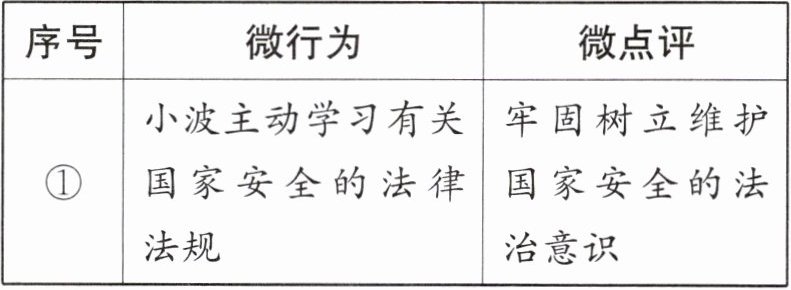 序号 微行为 微点评
① 小波主动学习有关 牢固树立维护
国家安全的法律 国家安全的法
法规 治意识